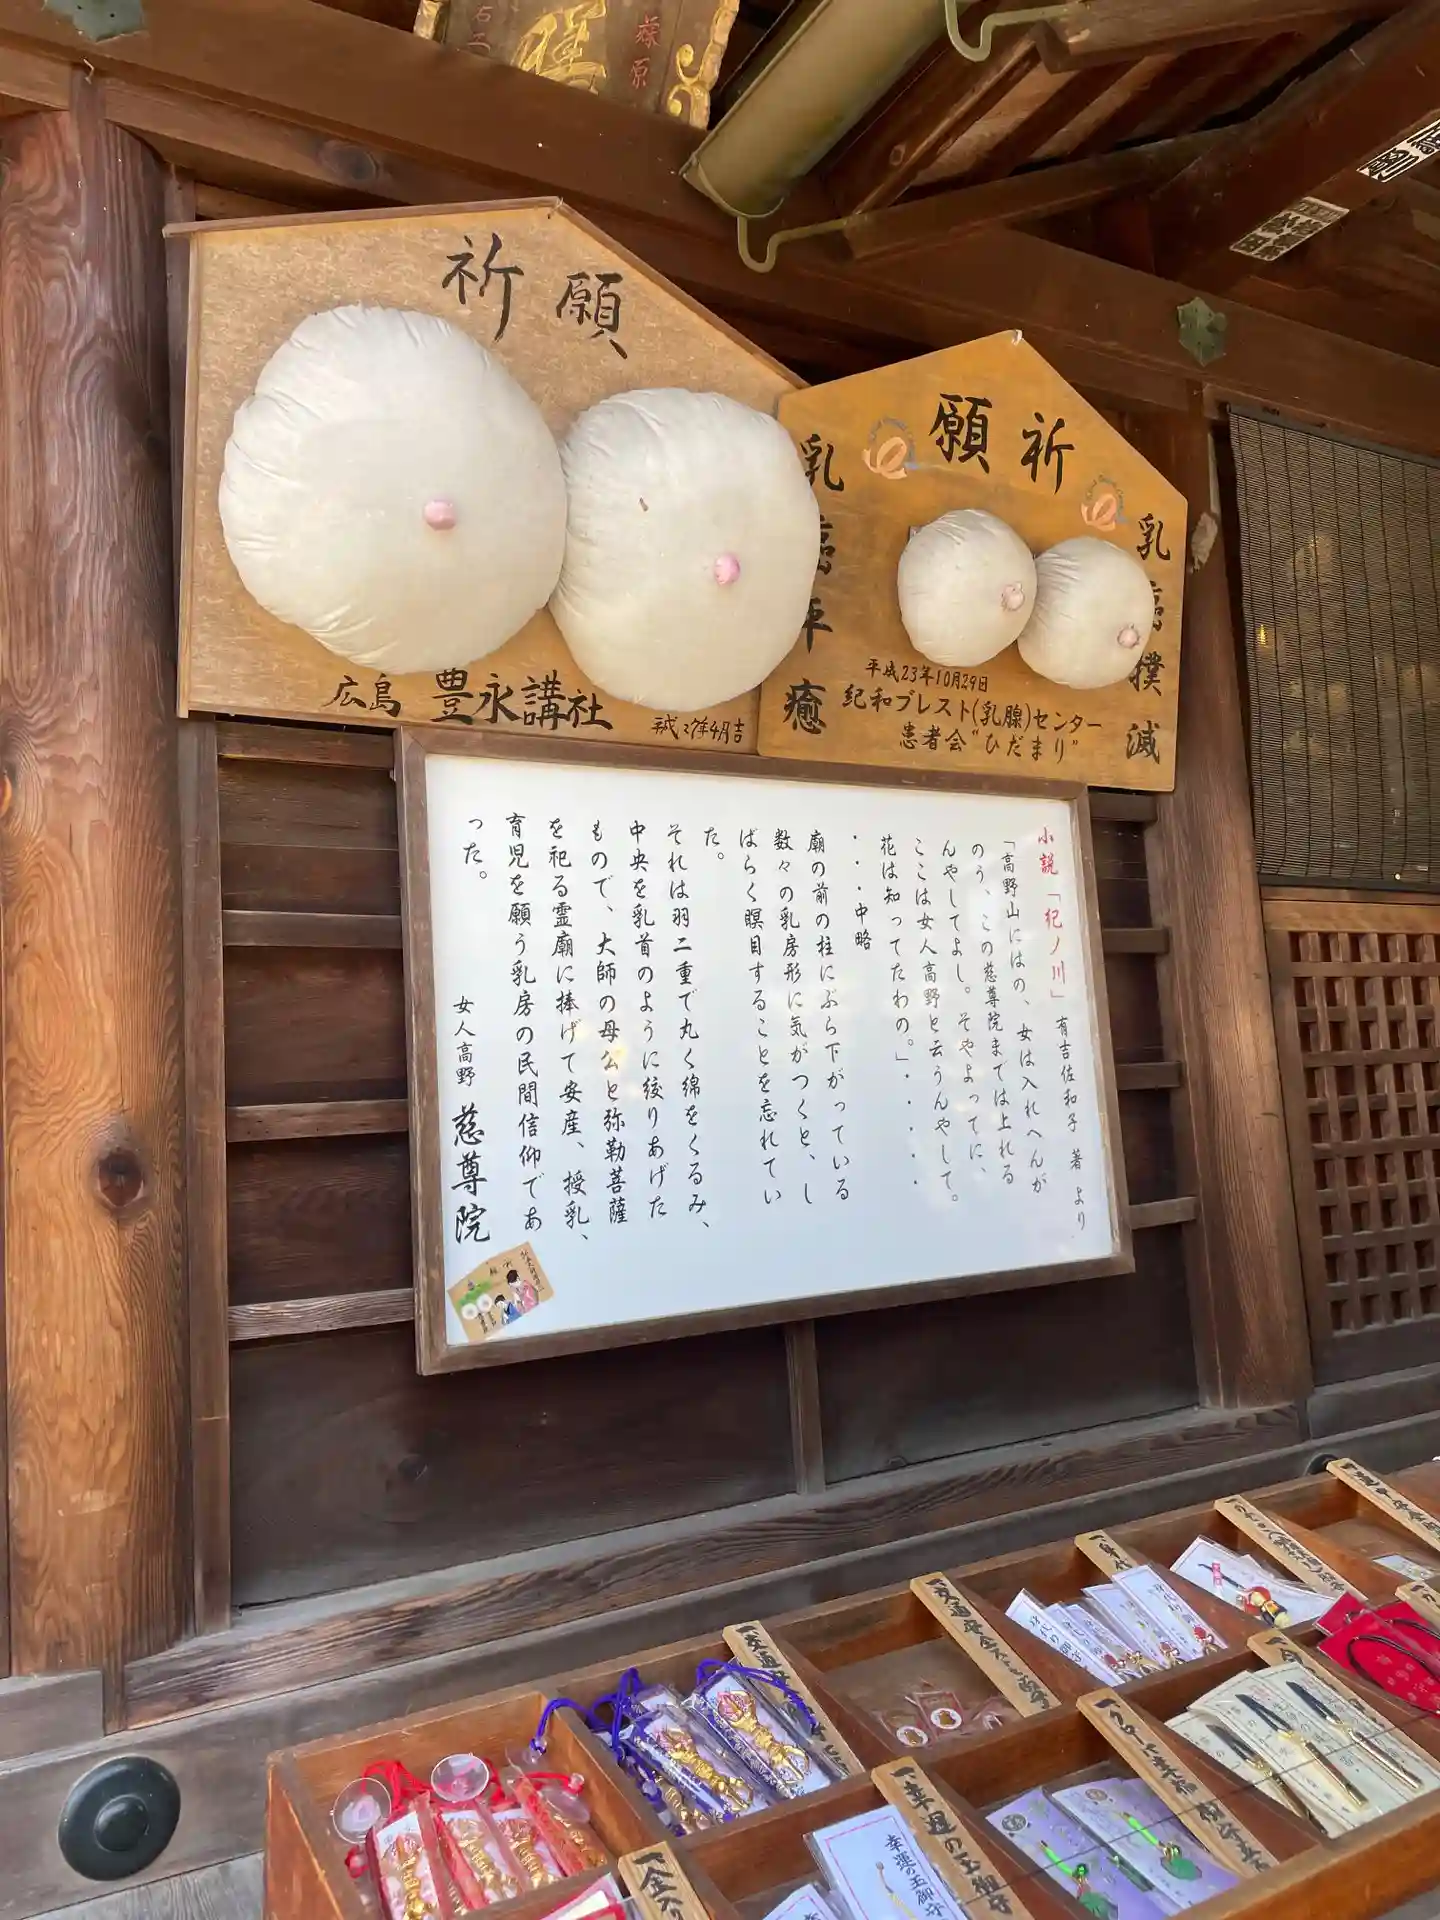 祈願
広島 豊永講社
平成27年4月吉
祈願
乳癌平癒
乳癌撲滅
平成23年10月29日
紀和ブレスト(乳腺)センター
患者会"ひだまり"
小説「紀ノ川」 有吉佐和子 著 より
「高野山にはの、女は入れへんが
のう、この慈尊院までは上れる
んやしてよし。そやよってに、
ここは女人高野と云うんやして。
花は知ってたわの。」・・・・・
・・・中略
廟の前の柱にぶら下がっている
数々の乳房形に気がつくと、し
ばらく瞑目することを忘れてい
た。
それは羽二重で丸く綿をくるみ、
中央を乳首のように絞りあげた
もので、大師の母公と弥勒菩薩
を祀る霊廟に捧げて安産、授乳、
育児を願う乳房の民間信仰であ
った。
女人高野 慈尊院
藤原
身代
交通安全
幸運の玉御守
幸運の玉御守